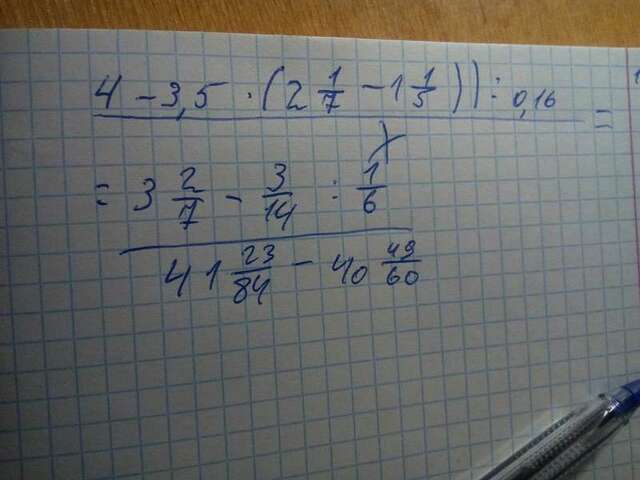 4 - 3,5 · (2 1/7 - 1 1/5)) : 0,16 =
x
= 3 2/7 - 3/14 : 1/6
41 23/84 - 40 49/60